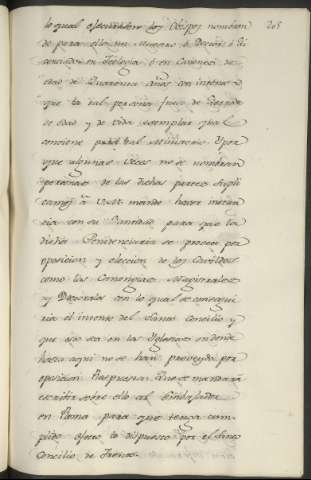 lo qual los Obispos nombran 208
de para ello un Maestro ó Doctor ó Li
cenciado en Teología ó en Canones de
edad de Quarenta años con intento
que la tal persona fuese de
de edad y de vida exemplar qual
conviene para tal Ministerio. Y por
que algunas veces no se nombran
personas de las dichas partes Supli
camos á V.M. mande hacer instan
cia con su Santidad para que la
dicha Penitenciaria se provea por
oposicion, y eleccion de los Cavildos
como las Canongias Magistrales
y Doctorales con lo qual se consegui
ria el intento del Santo Concilio y
que esto sea en las Iglesias en donde
hasta aqui no se han proveydo por
oposicion. Respuesta. Que se mandará
escribir sobre ello al Embajador
en Roma para que tenga cum
plido efecto lo dispuesto por el Santo
Concilio de Trento.